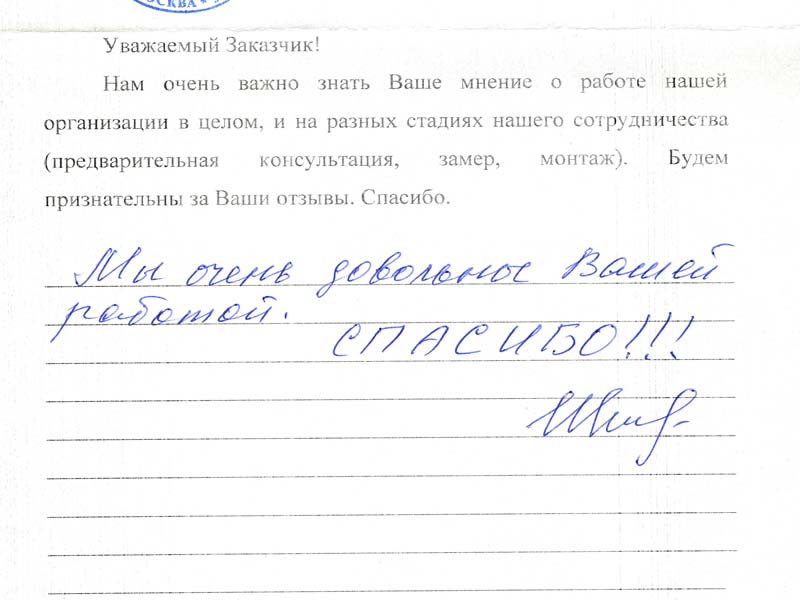 МОСКВА *
Уважаемый Заказчик!
Нам очень важно знать Ваше мнение о работе нашей
организации в целом, и на разных стадиях нашего сотрудничества
(предварительная консультация, замер, монтаж). Будем
признательны за Ваши отзывы. Спасибо.
Мы очень довольны Вашей
работой.
СПАСИБО!!!